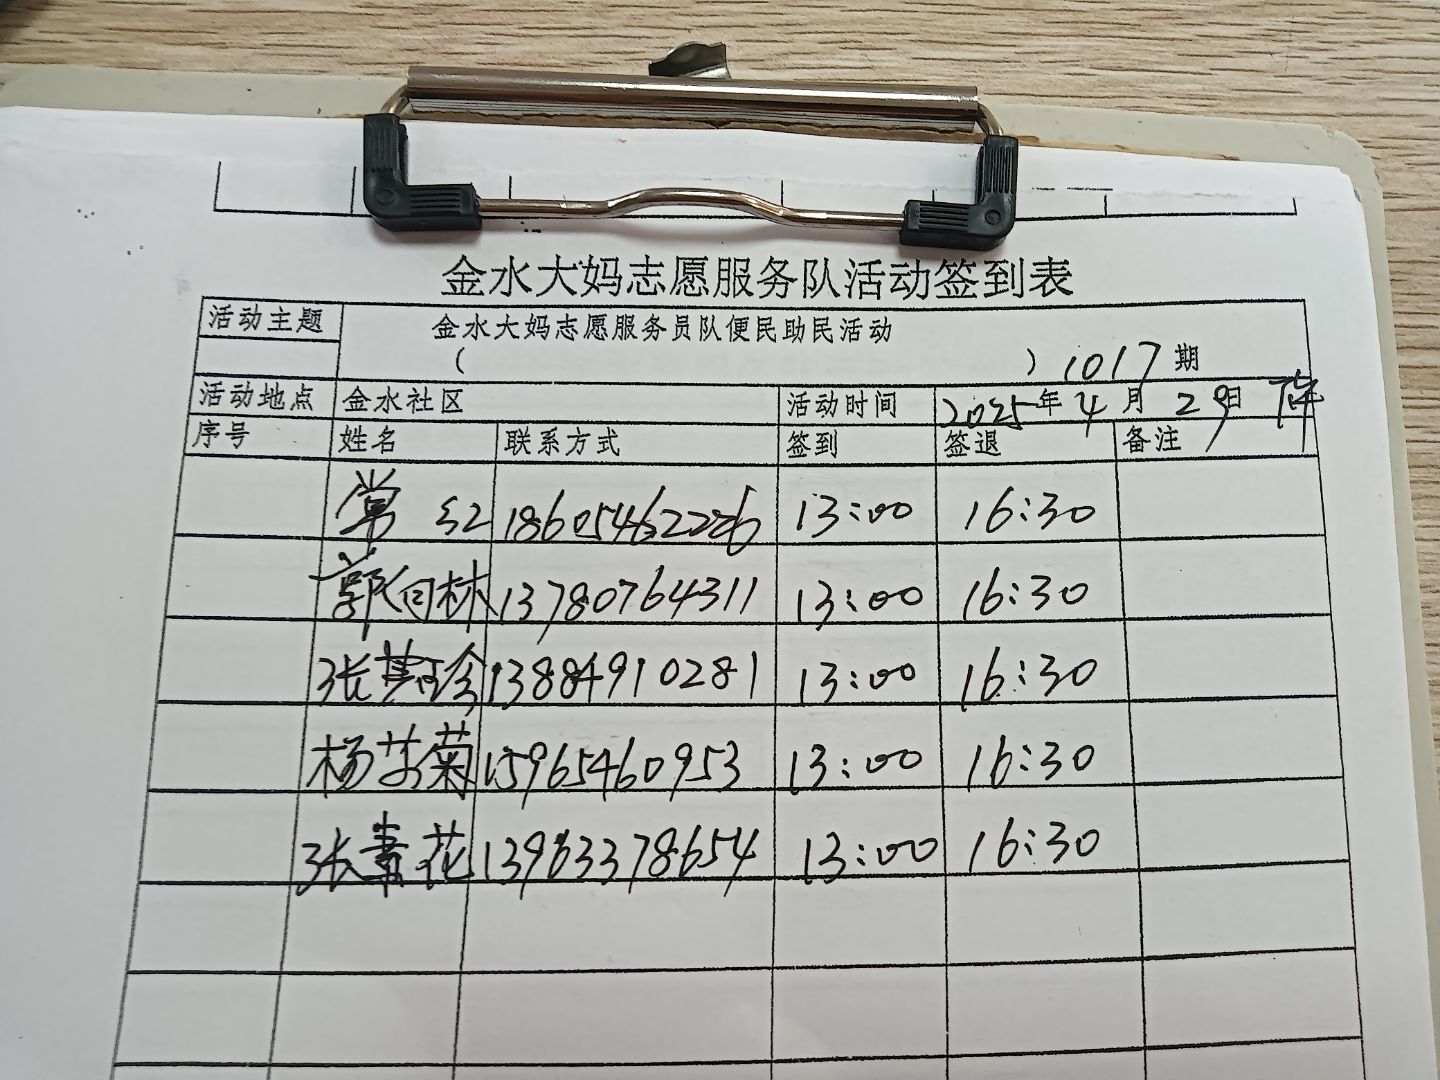 金水大妈志愿服务队活动签到表
活动主题 金水大妈志愿服务员队便民助民活动
( ) 1017期
活动地点 金水社区 活动时间 2025年4月29日 下午
序号 姓名 联系方式 签到 签退 备注
常红 18605462226 13:00 16:30
郭向林 13780764311 13:00 16:30
张 珍 13884910281 13:00 16:30
杨 菊 15965460953 13:00 16:30
张素花 13963378654 13:00 16:30